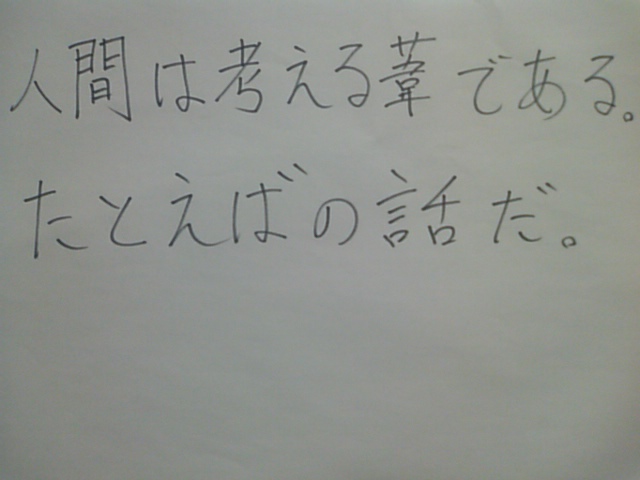 人間は考える葦である。
たとえばの話だ。